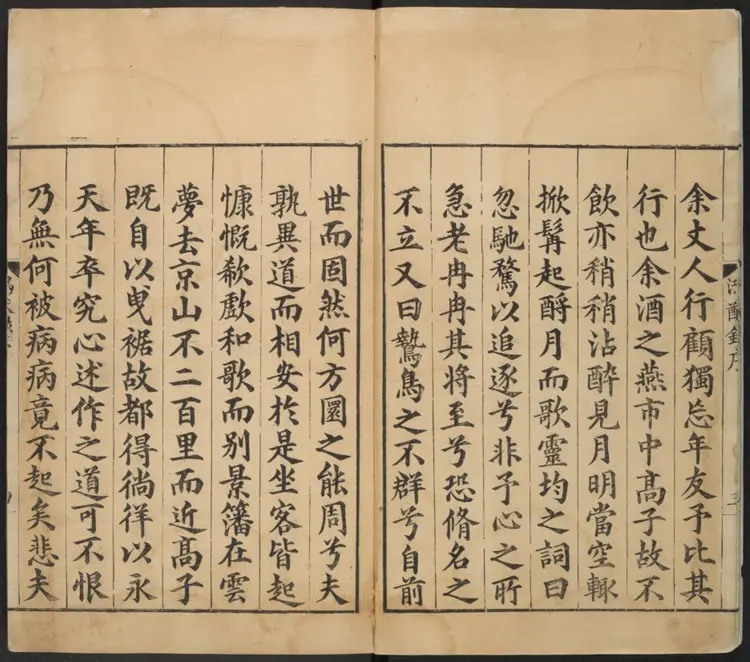 余丈人行顧獨忘年友予比其
行也余酒之燕市中髙子故不
飲亦稍稍沾醉見月明當空輙
掀髯起酹月而歌靈均之詞曰
忽馳騖以追逐兮非予心之所
急老冉冉其將至兮恐脩名之
不立又曰鷙鳥之不群兮自前
世而固然何方圜之能周兮夫
孰異道而相安於是坐客皆起
慷慨欷歔和歌而别景籓在雲
夢去京山不二百里而近髙子
既自以曵裾故都得徜徉以永
天年卒究心述作之道可不恨
乃無何被病病竟不起矣悲夫